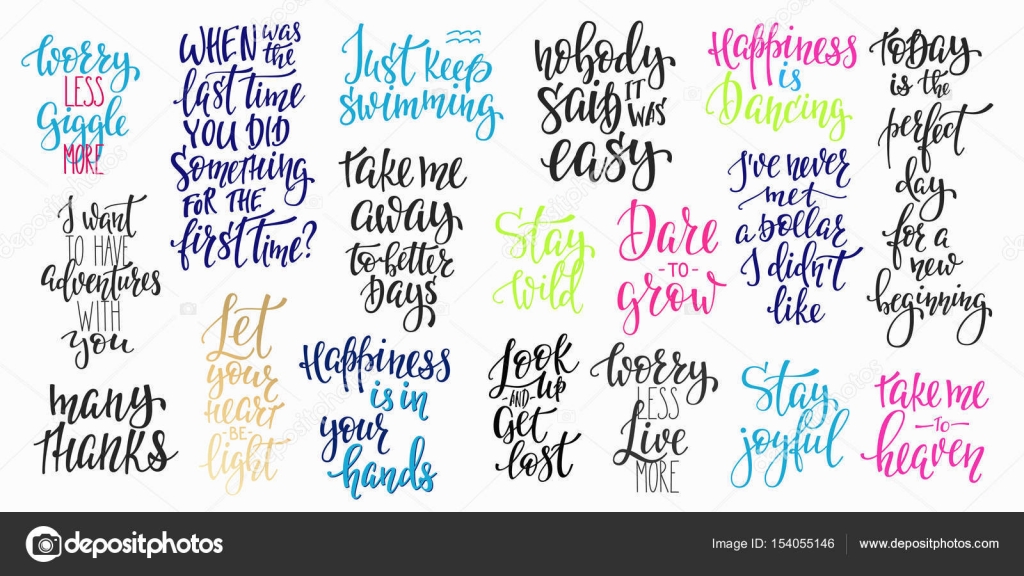 Worry
LESS
Giggle
MORE
WHEN was
the
last time
YOU DID
Something
FOR THE
first time?
Just keep
swimming
nobody
said IT
WAS
easy
Happiness
is
Dancing
today
is the
perfect
day
for a
new
beginning
I want
TO HAVE
adventures
WITH
you
take me
away
to better
Days
Stay
wild
Dare
-TO-
grow
I've never
met
a dollar
I didn't
like
many
thanks
Let
your
heart
BE-
light
Happiness
is in
your
hands
Look
up
-AND-
Get
lost
Worry
LESS
Live
MORE
Stay
joyful
take me
-TO-
heaven
depositphotos
Image ID: 154055146
www.depositphotos.com